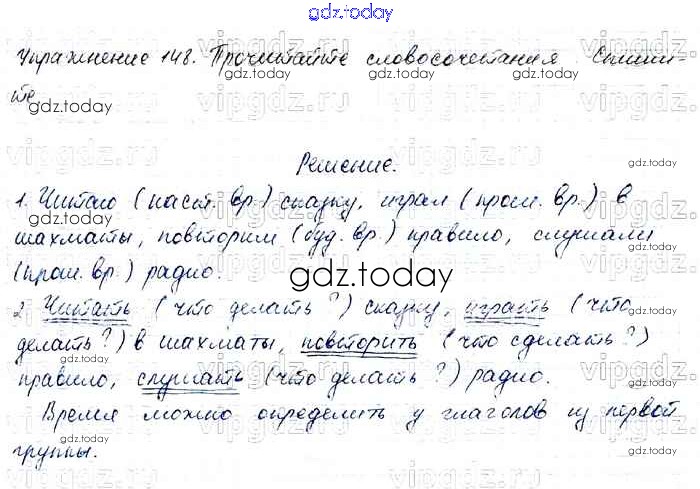 gdz.today
Упражнение 148. Прочитайте словосочетания Спиши-
те
Решение.
1. Читаю (наст. вр.) сказку, играл (прош. вр.) в
шахматы, повторим (буд. вр.) правило, слушали
(прош. вр.) радио.
gdz.today
2. Читать (что делать?) сказку, играть (что
делать?) в шахматы, повторить (что сделать?)
правило, слушать (что делать?) радио.
Время можно определить у глаголов из первой
группы.